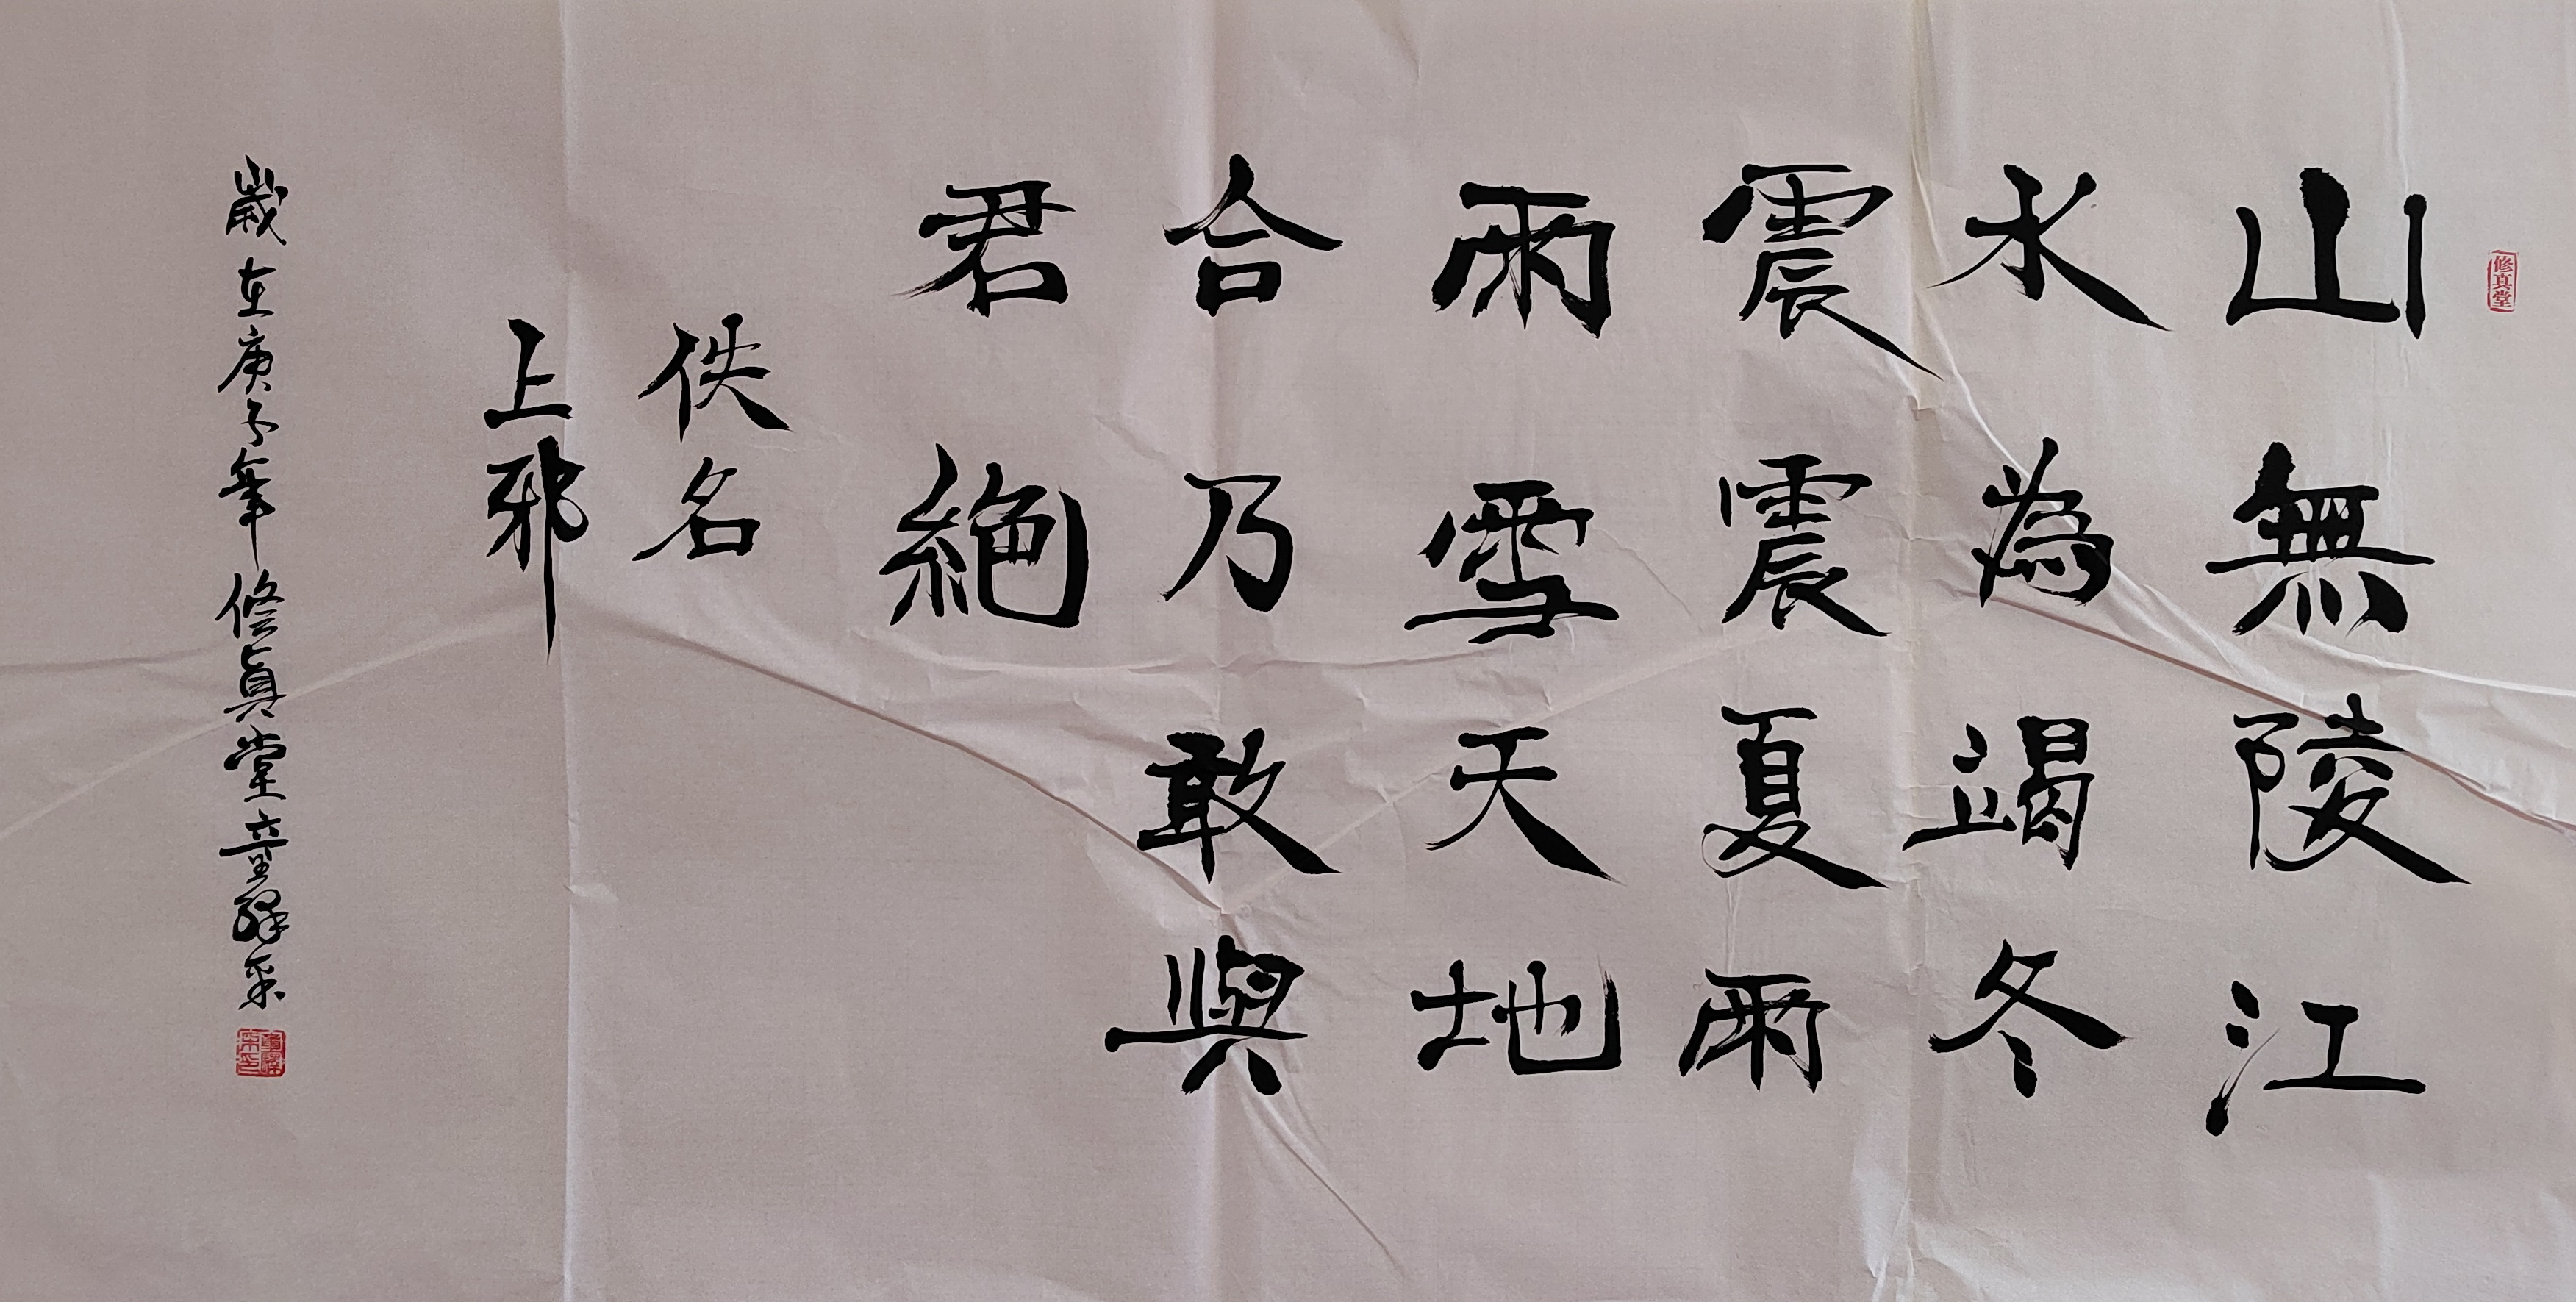 修真堂
山無陵江
水為竭冬
震震夏雨
雨雪天地
合乃敢與
君絕
佚名
上邪
歲在庚子年修真堂童繹采